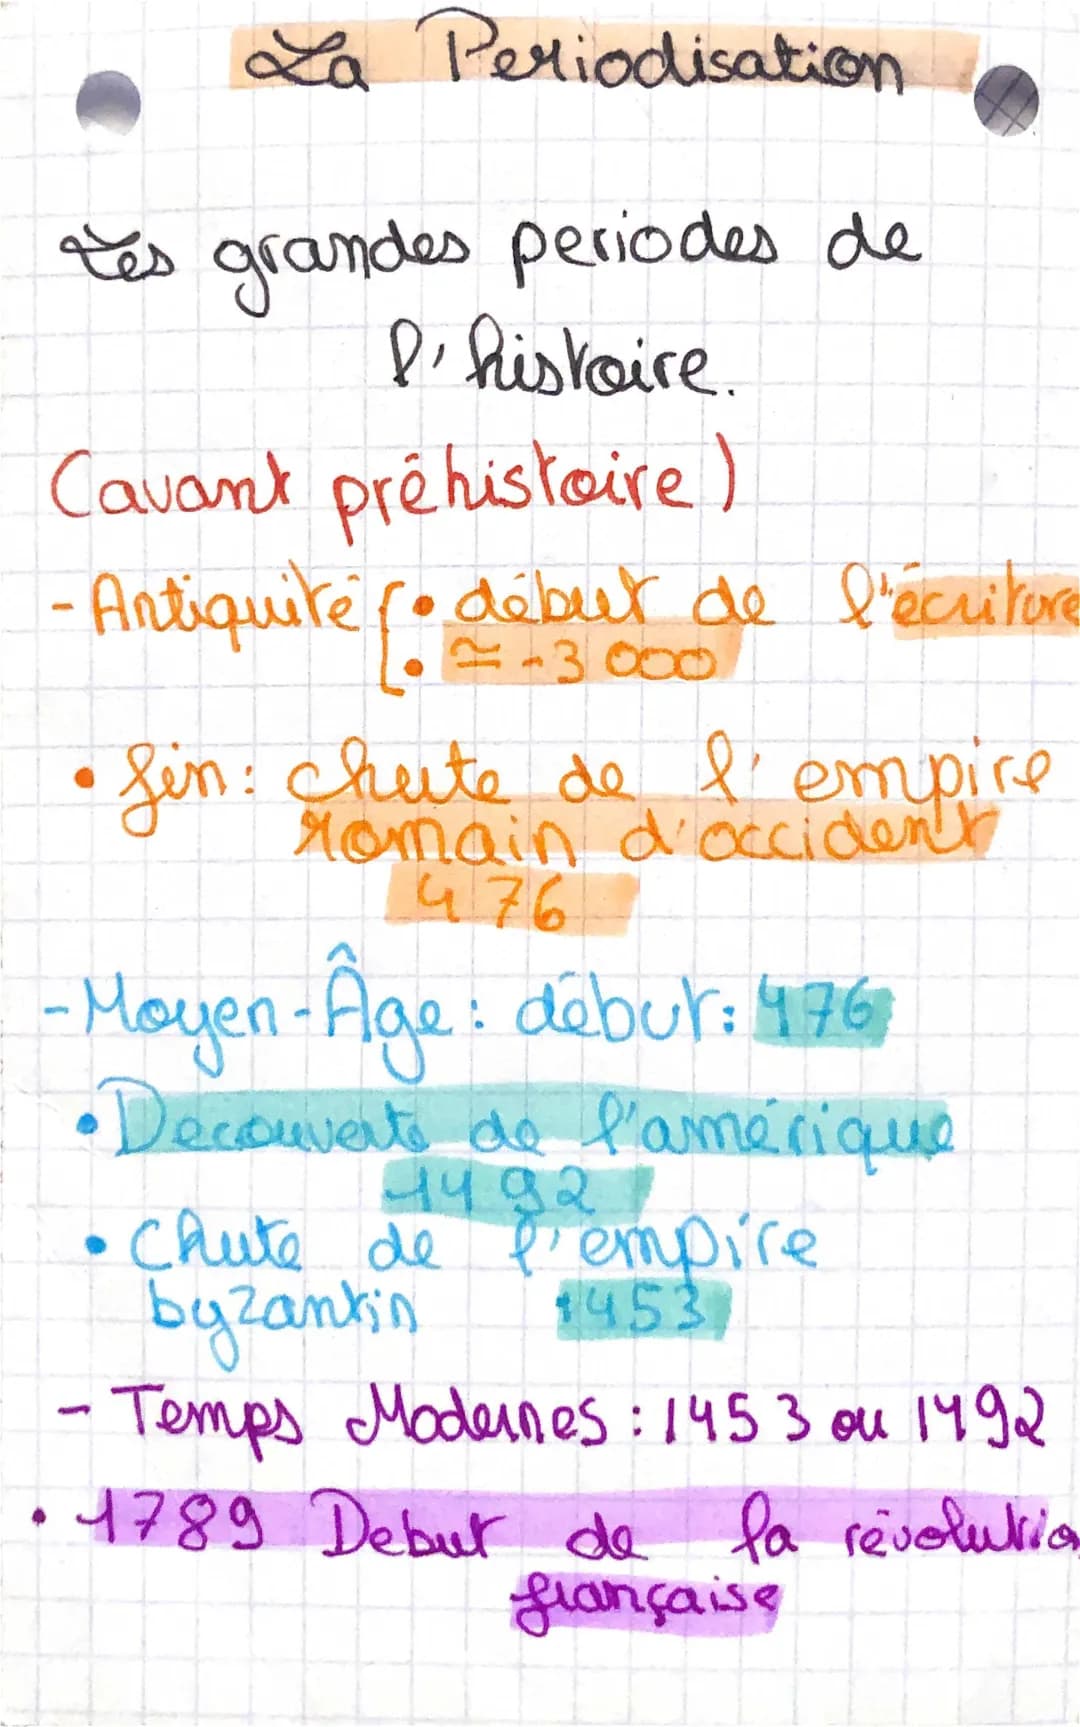 La Periodisation
Les grandes periodes de
l'histoire.
(avant préhistoire)
- Antiquité [• début de l'écriture
• ≃ -3 000
• fin: chute de l'empire
romain d'occident
476
- Moyen-Âge: début: 476
• Decouverte de l'amérique
1492
• Chute de l'empire
byzantin 1453
- Temps Modernes: 1453 ou 1492
• 1789 Debut de la révolution
française